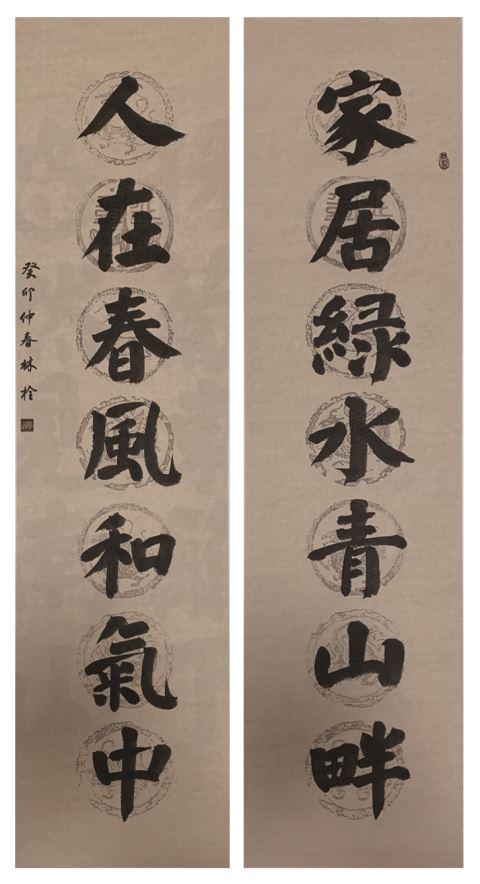 家居緑水青山畔
人在春風和氣中
癸卯仲春林栓